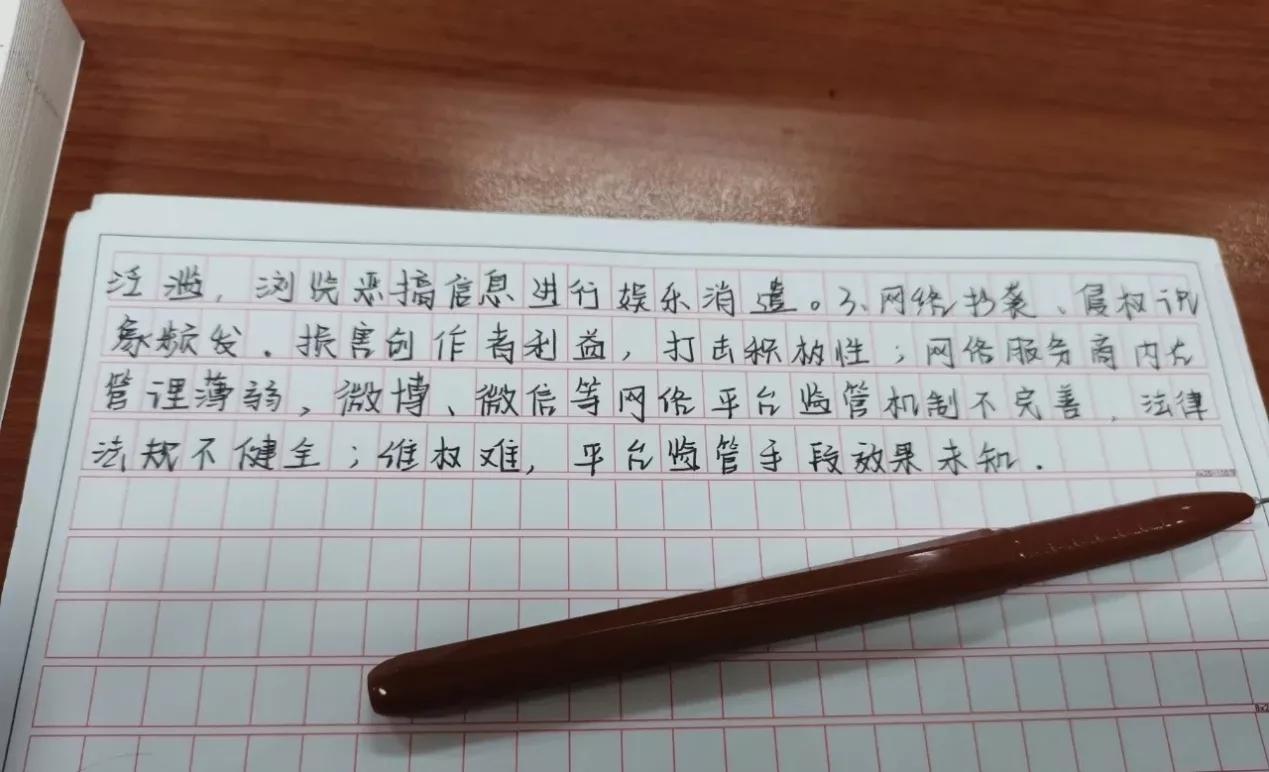 泛滥，浏览恶搞信息进行娱乐消遣。3、网络抄袭、侵权现
象频发，损害创作者利益，打击积极性；网络服务商内在
管理薄弱，微博、微信等网络平台监管机制不完善，法律
法规不健全；维权难，平台监管手段效果未知.